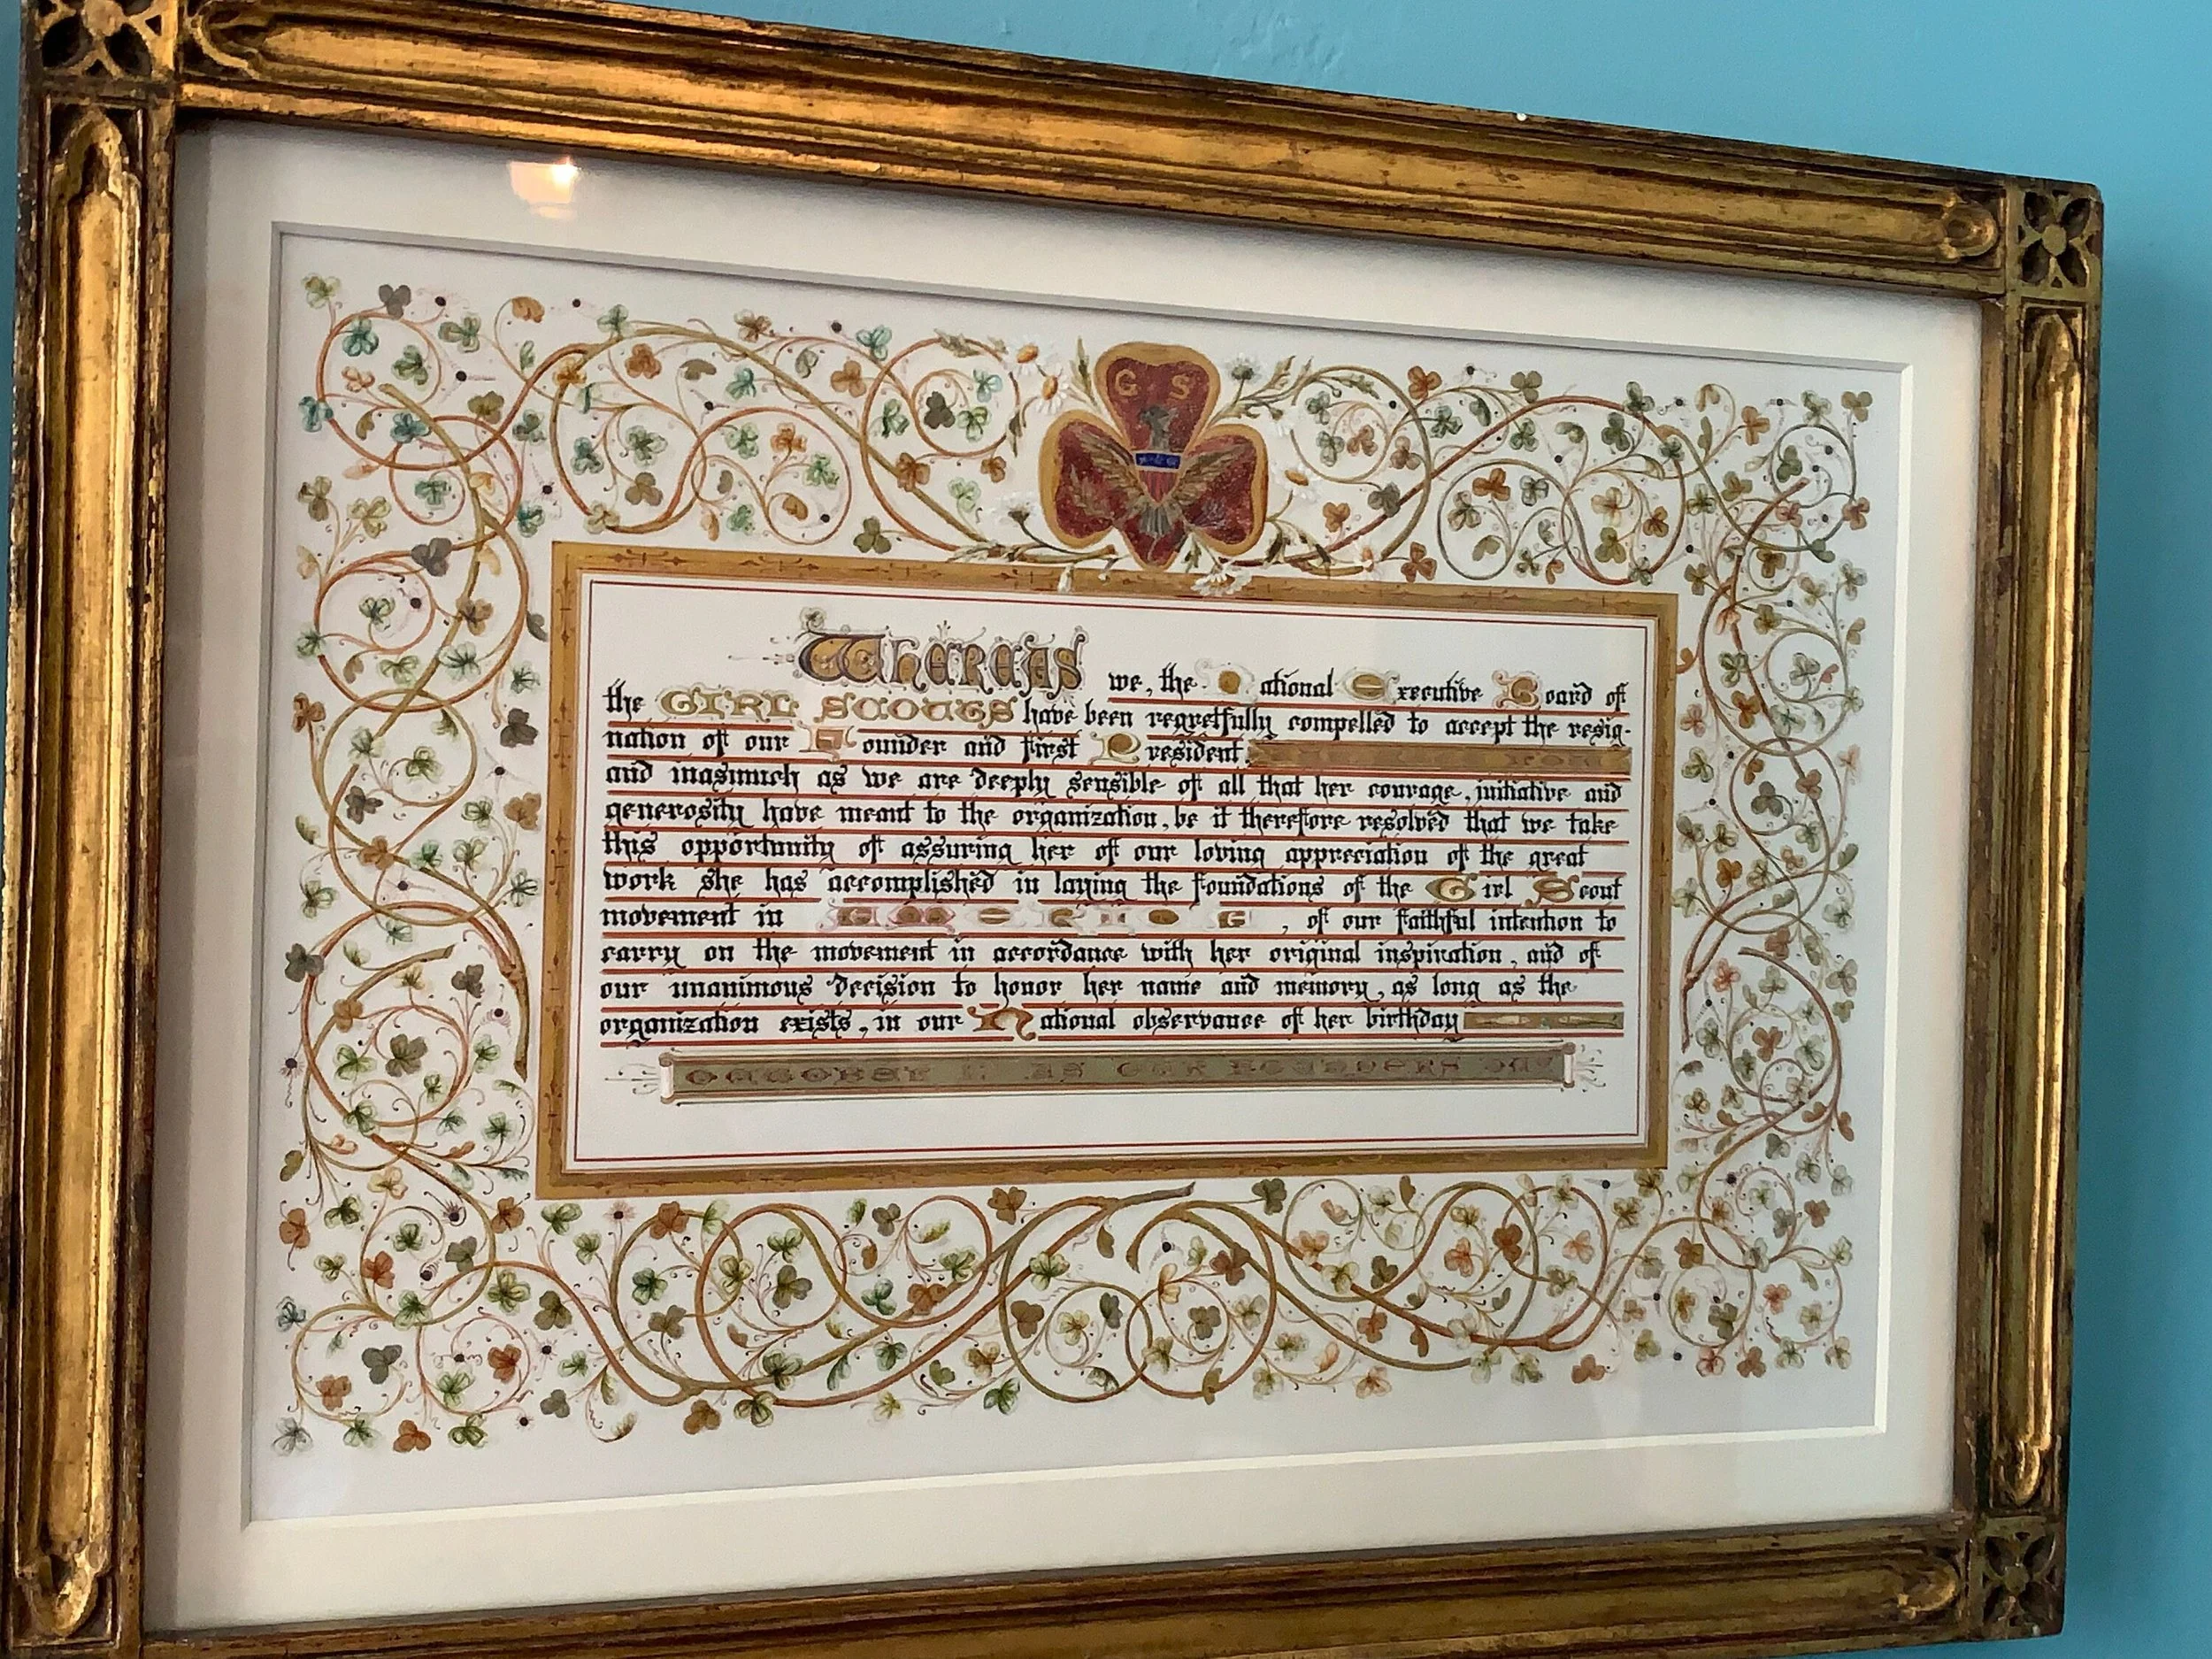 G S
Whereas we, the National Executive Board of
the GIRL SCOUTS have been regretfully compelled to accept the resig-
nation of our Founder and First President,
and inasmuch as we are deeply sensible of all that her courage, initiative and
generosity have meant to the organization, be it therefore resolved that we take
this opportunity of assuring her of our loving appreciation of the great
work she has accomplished in laying the foundations of the Girl Scout
movement in AMERICA, of our faithful intention to
carry on the movement in accordance with her original inspiration, and of
our unanimous decision to honor her name and memory, as long as the
organization exists, in our National observance of her birthday
OCTOBER AS OUR FOUNDERS DAY